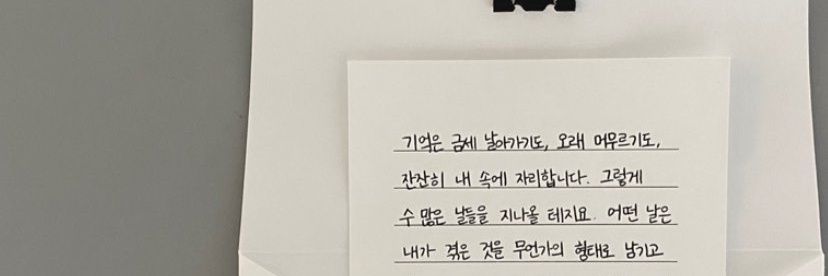 기억은 금세 날아가기도, 오래 머무르기도,
잔잔히 내 속에 자리합니다. 그렇게
수 많은 날들을 지나올 테지요. 어떤 날은
내가 겪은 것을 무언가의 형태로 남기고